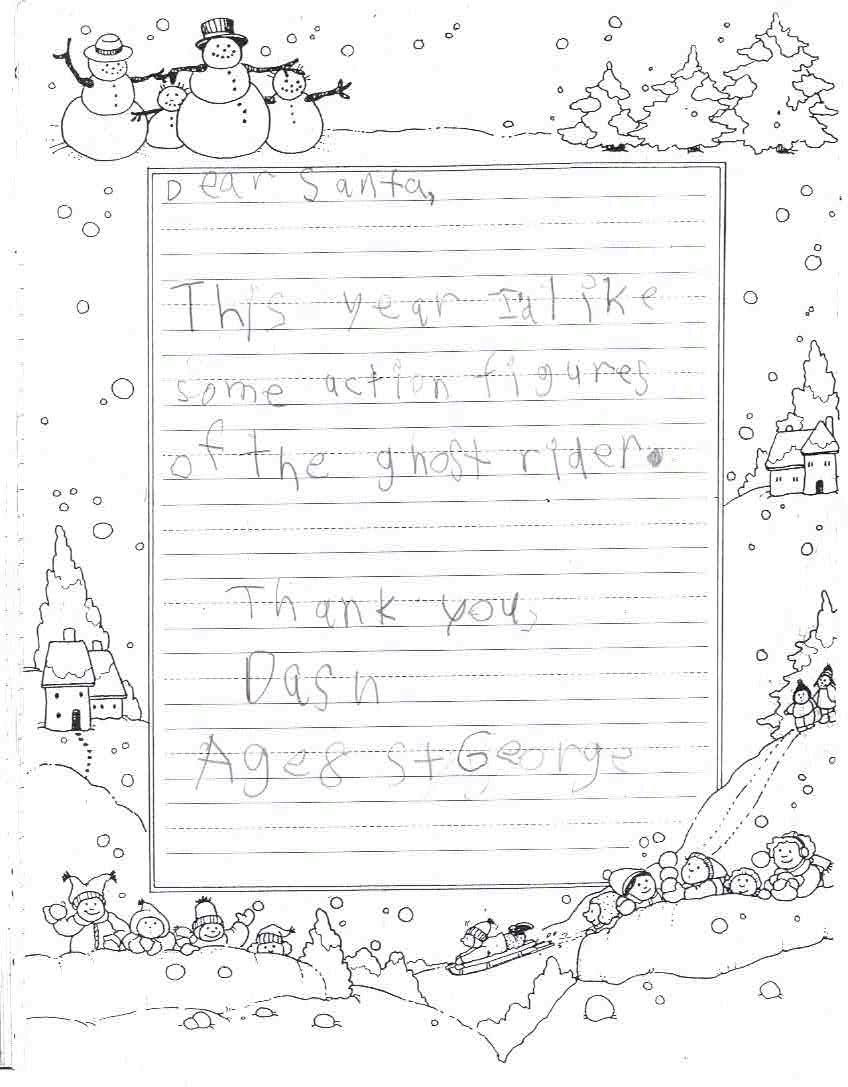 Dear Santa,
This year I'd like
some action figures
of the ghost rider.
Thank you,
Dash
Age 8 St George